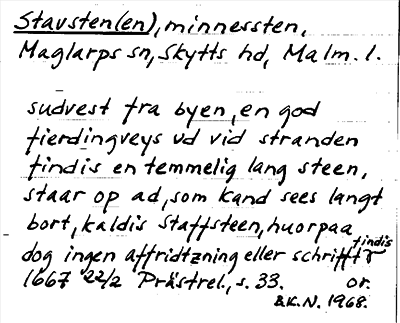 Stavsten(en), minnessten,
Maglarps sn, Skytts hd, Malm. l.
sudvest fra byen, en god
fierdingveys ud vid stranden
findis en temmelig lang steen,
staar op ad, som kand sees langt
bort, kaldis Staffsteen, huorpaa
dog ingen affridtzning eller schrifft findis
1667 22/2 Prästrel., s. 33. or.
B.K.N. 1968.